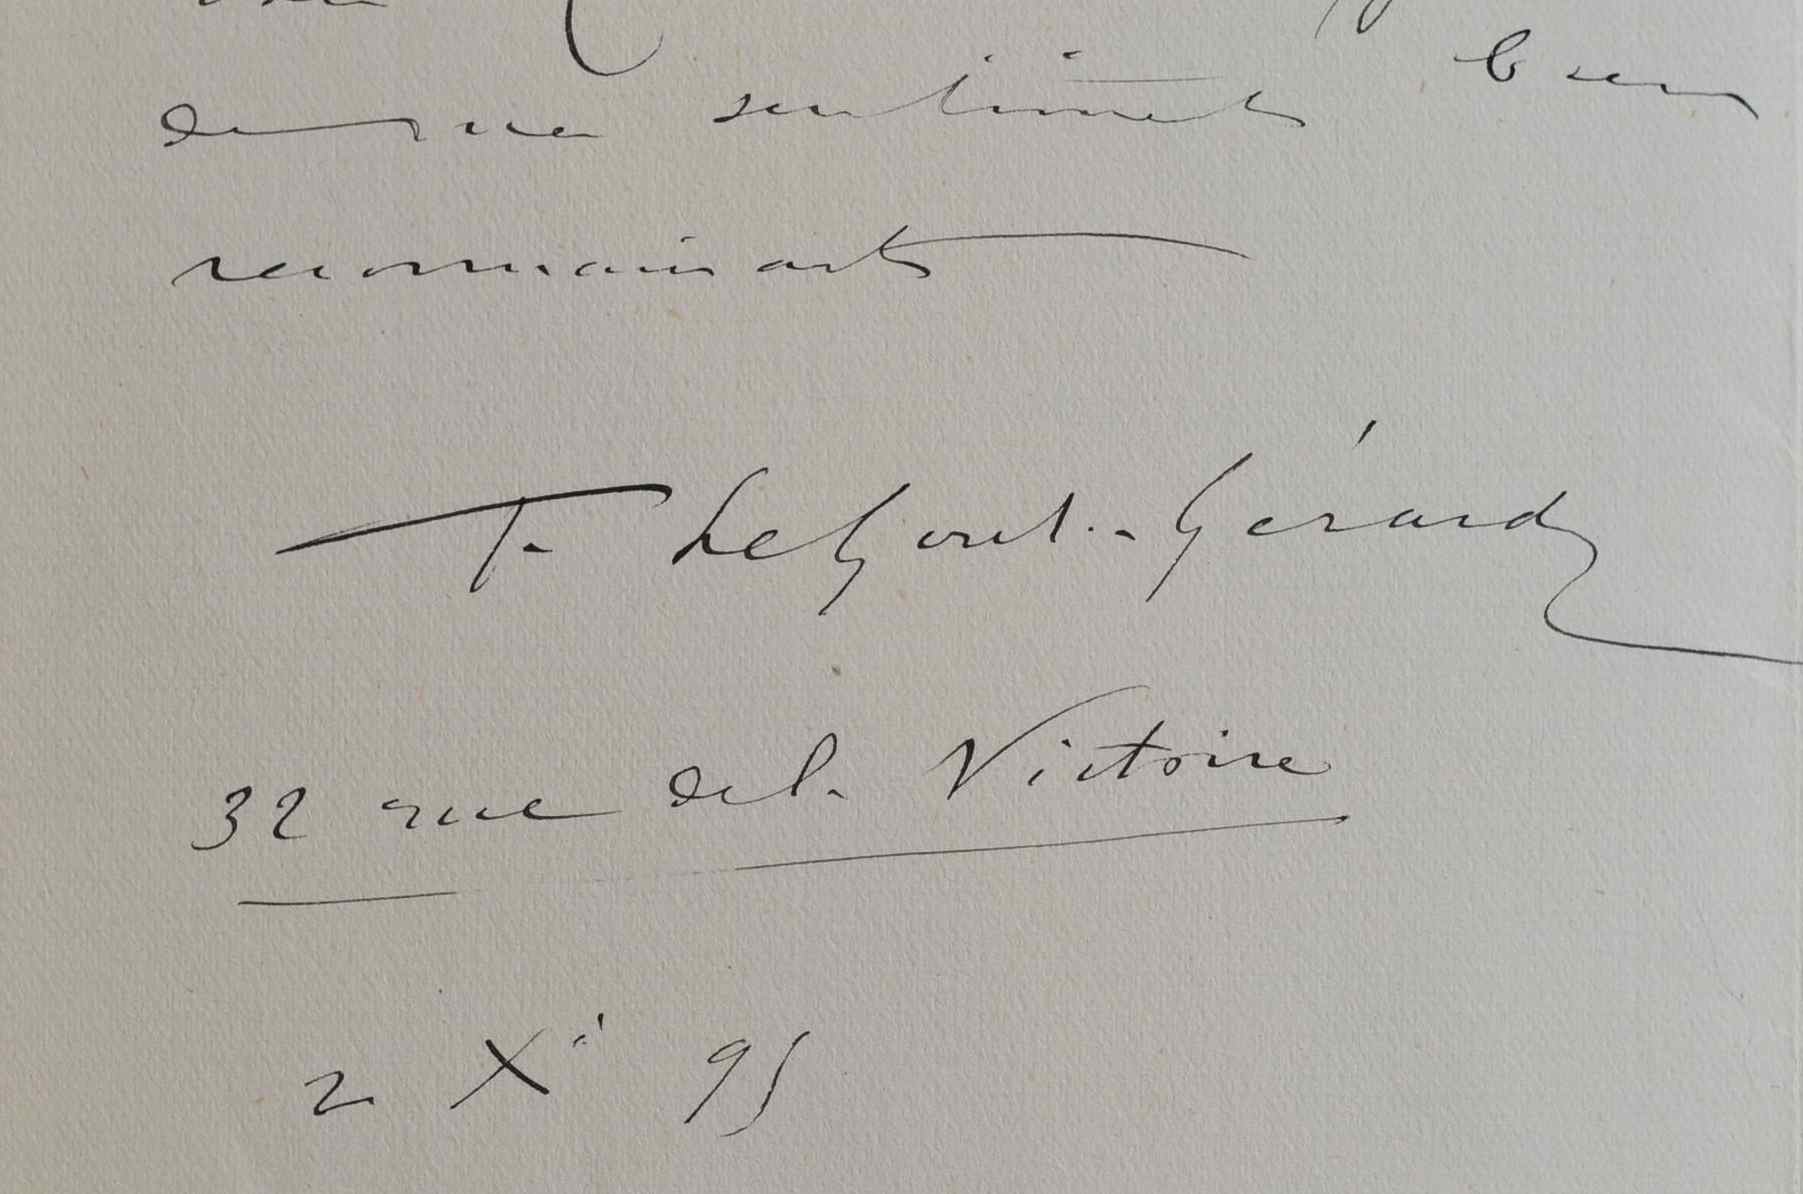 de mes sentiments bien
reconnaissants
F. LeGout-Gérard
32 rue de la Victoire
2 Xe 95